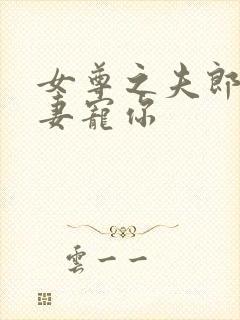 女尊之夫郎
妻寵你
雲一一